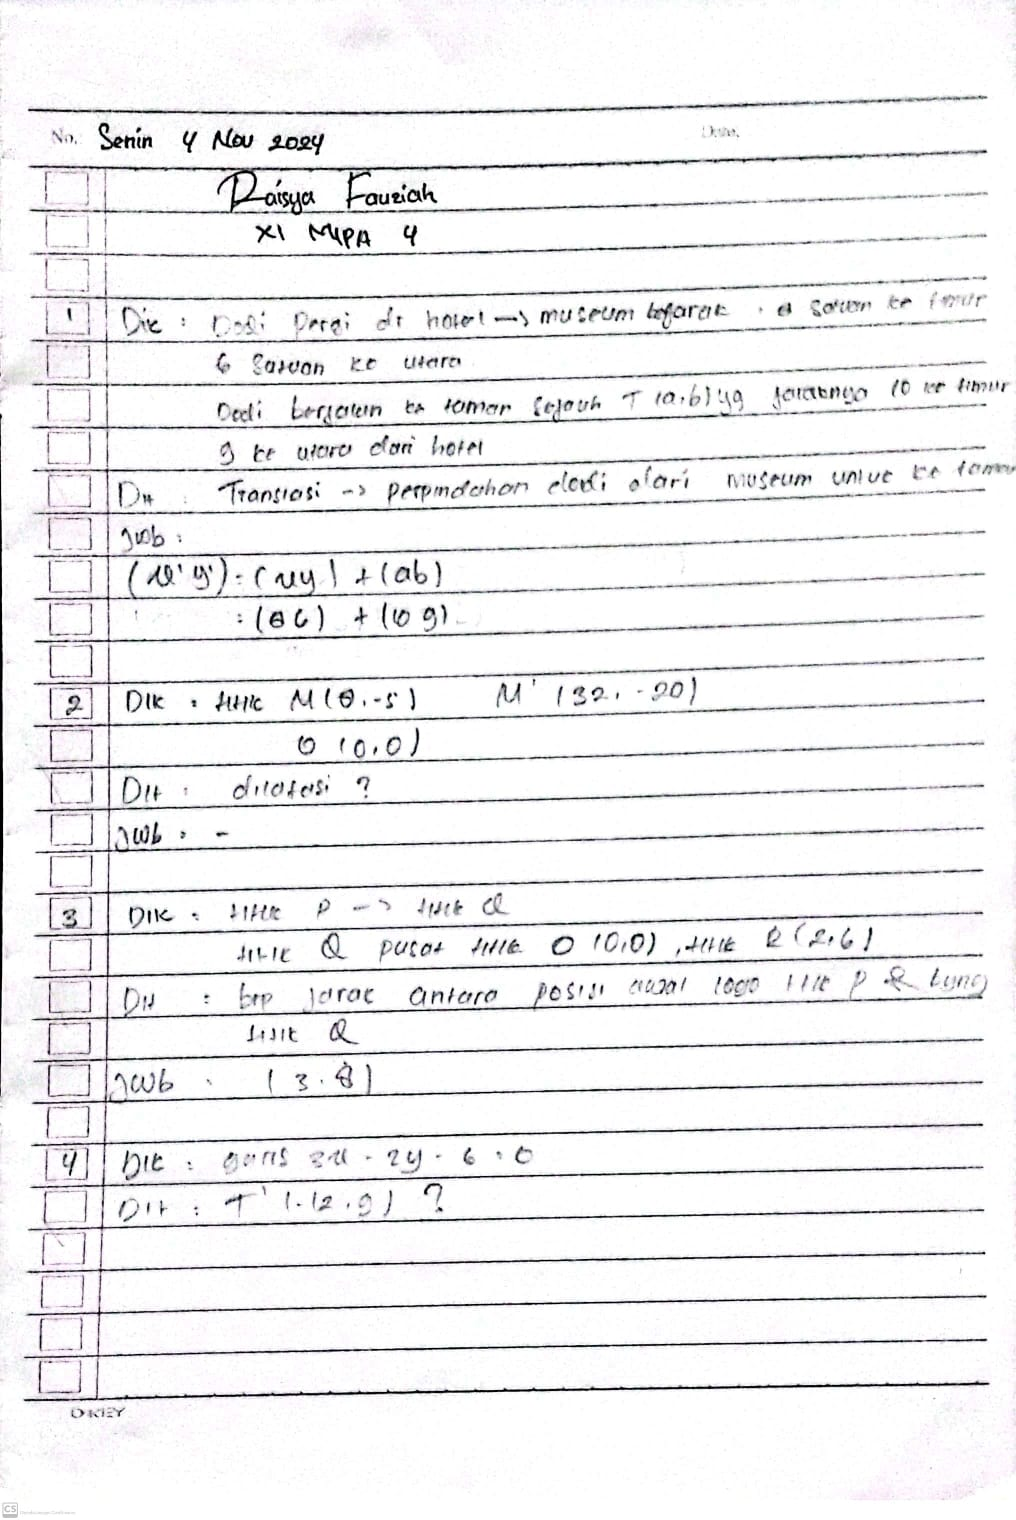 No. Senin 4 Nov 2024 Date.
Raisya Fauziah
XI MIPA 4
1 Dik : Dodi pergi dr hotel → museum berjarak 8 satuan ke timur
6 satuan ke utara
Dodi berjalan ke taman sejauh T (a,b) yg jaraknya 10 ke timur
9 ke utara dari hotel
Dit : Translasi → perpindahan dodi dari museum untuk ke taman
Jwb :
(x' y') = (x y) + (a b)
= (8 6) + (10 9)
2 Dik : titik M (8, -5) M' (32, -20)
O (0,0)
Dit : dilatasi ?
Jwb : -
3 Dik : titik P -> titik Q
titik Q pusat titik O (0,0), titik R (2,6)
Dit : brp jarak antara posisi awal logo titik P &
titik Q
Jwb : (3.8)
4 Dik : garis 3x - 2y - 6 = 0
Dit : T' (-12, 9) ?
OKEY
CS